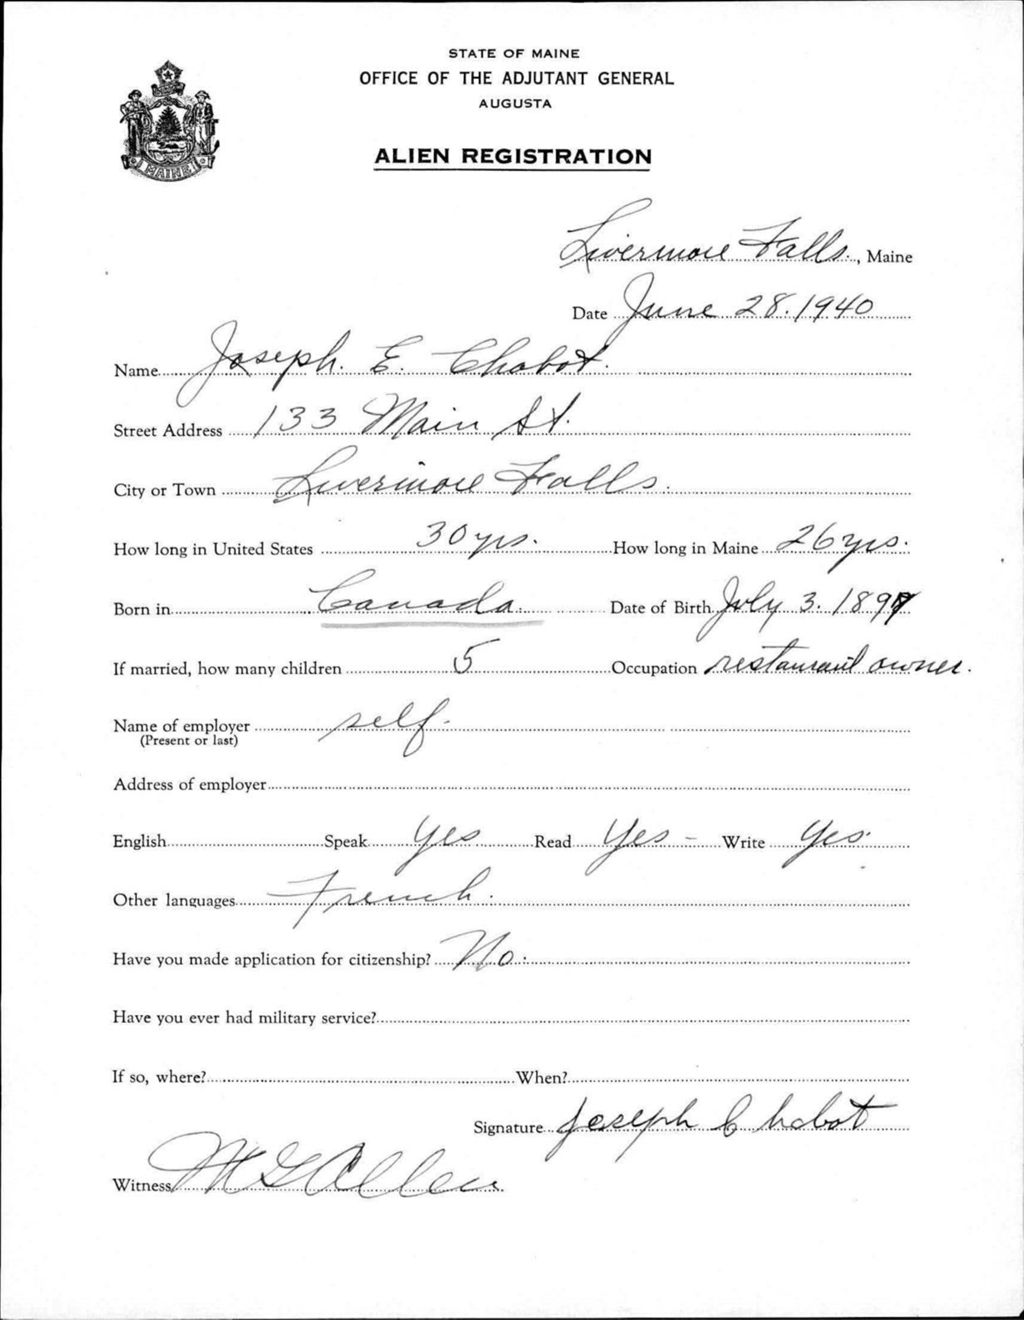 STATE OF MAINE
OFFICE OF THE ADJUTANT GENERAL
AUGUSTA
MAINE
ALIEN REGISTRATION
Livermore Falls, Maine
Date June 28. 1940
Name Joseph. E. Chabot.
Street Address 133 Main St.
City or Town Livermore Falls.
How long in United States 30 yrs. How long in Maine 26 yrs.
Born in Canada. Date of Birth July 3. 1897
If married, how many children 5 Occupation restaurant owner.
Name of employer self.
(Present or last)
Address of employer
English Speak Yes Read Yes - Write Yes.
Other languages French.
Have you made application for citizenship? No.
Have you ever had military service?
If so, where? When?
Signature Joseph Chabot
Witness M G Allen